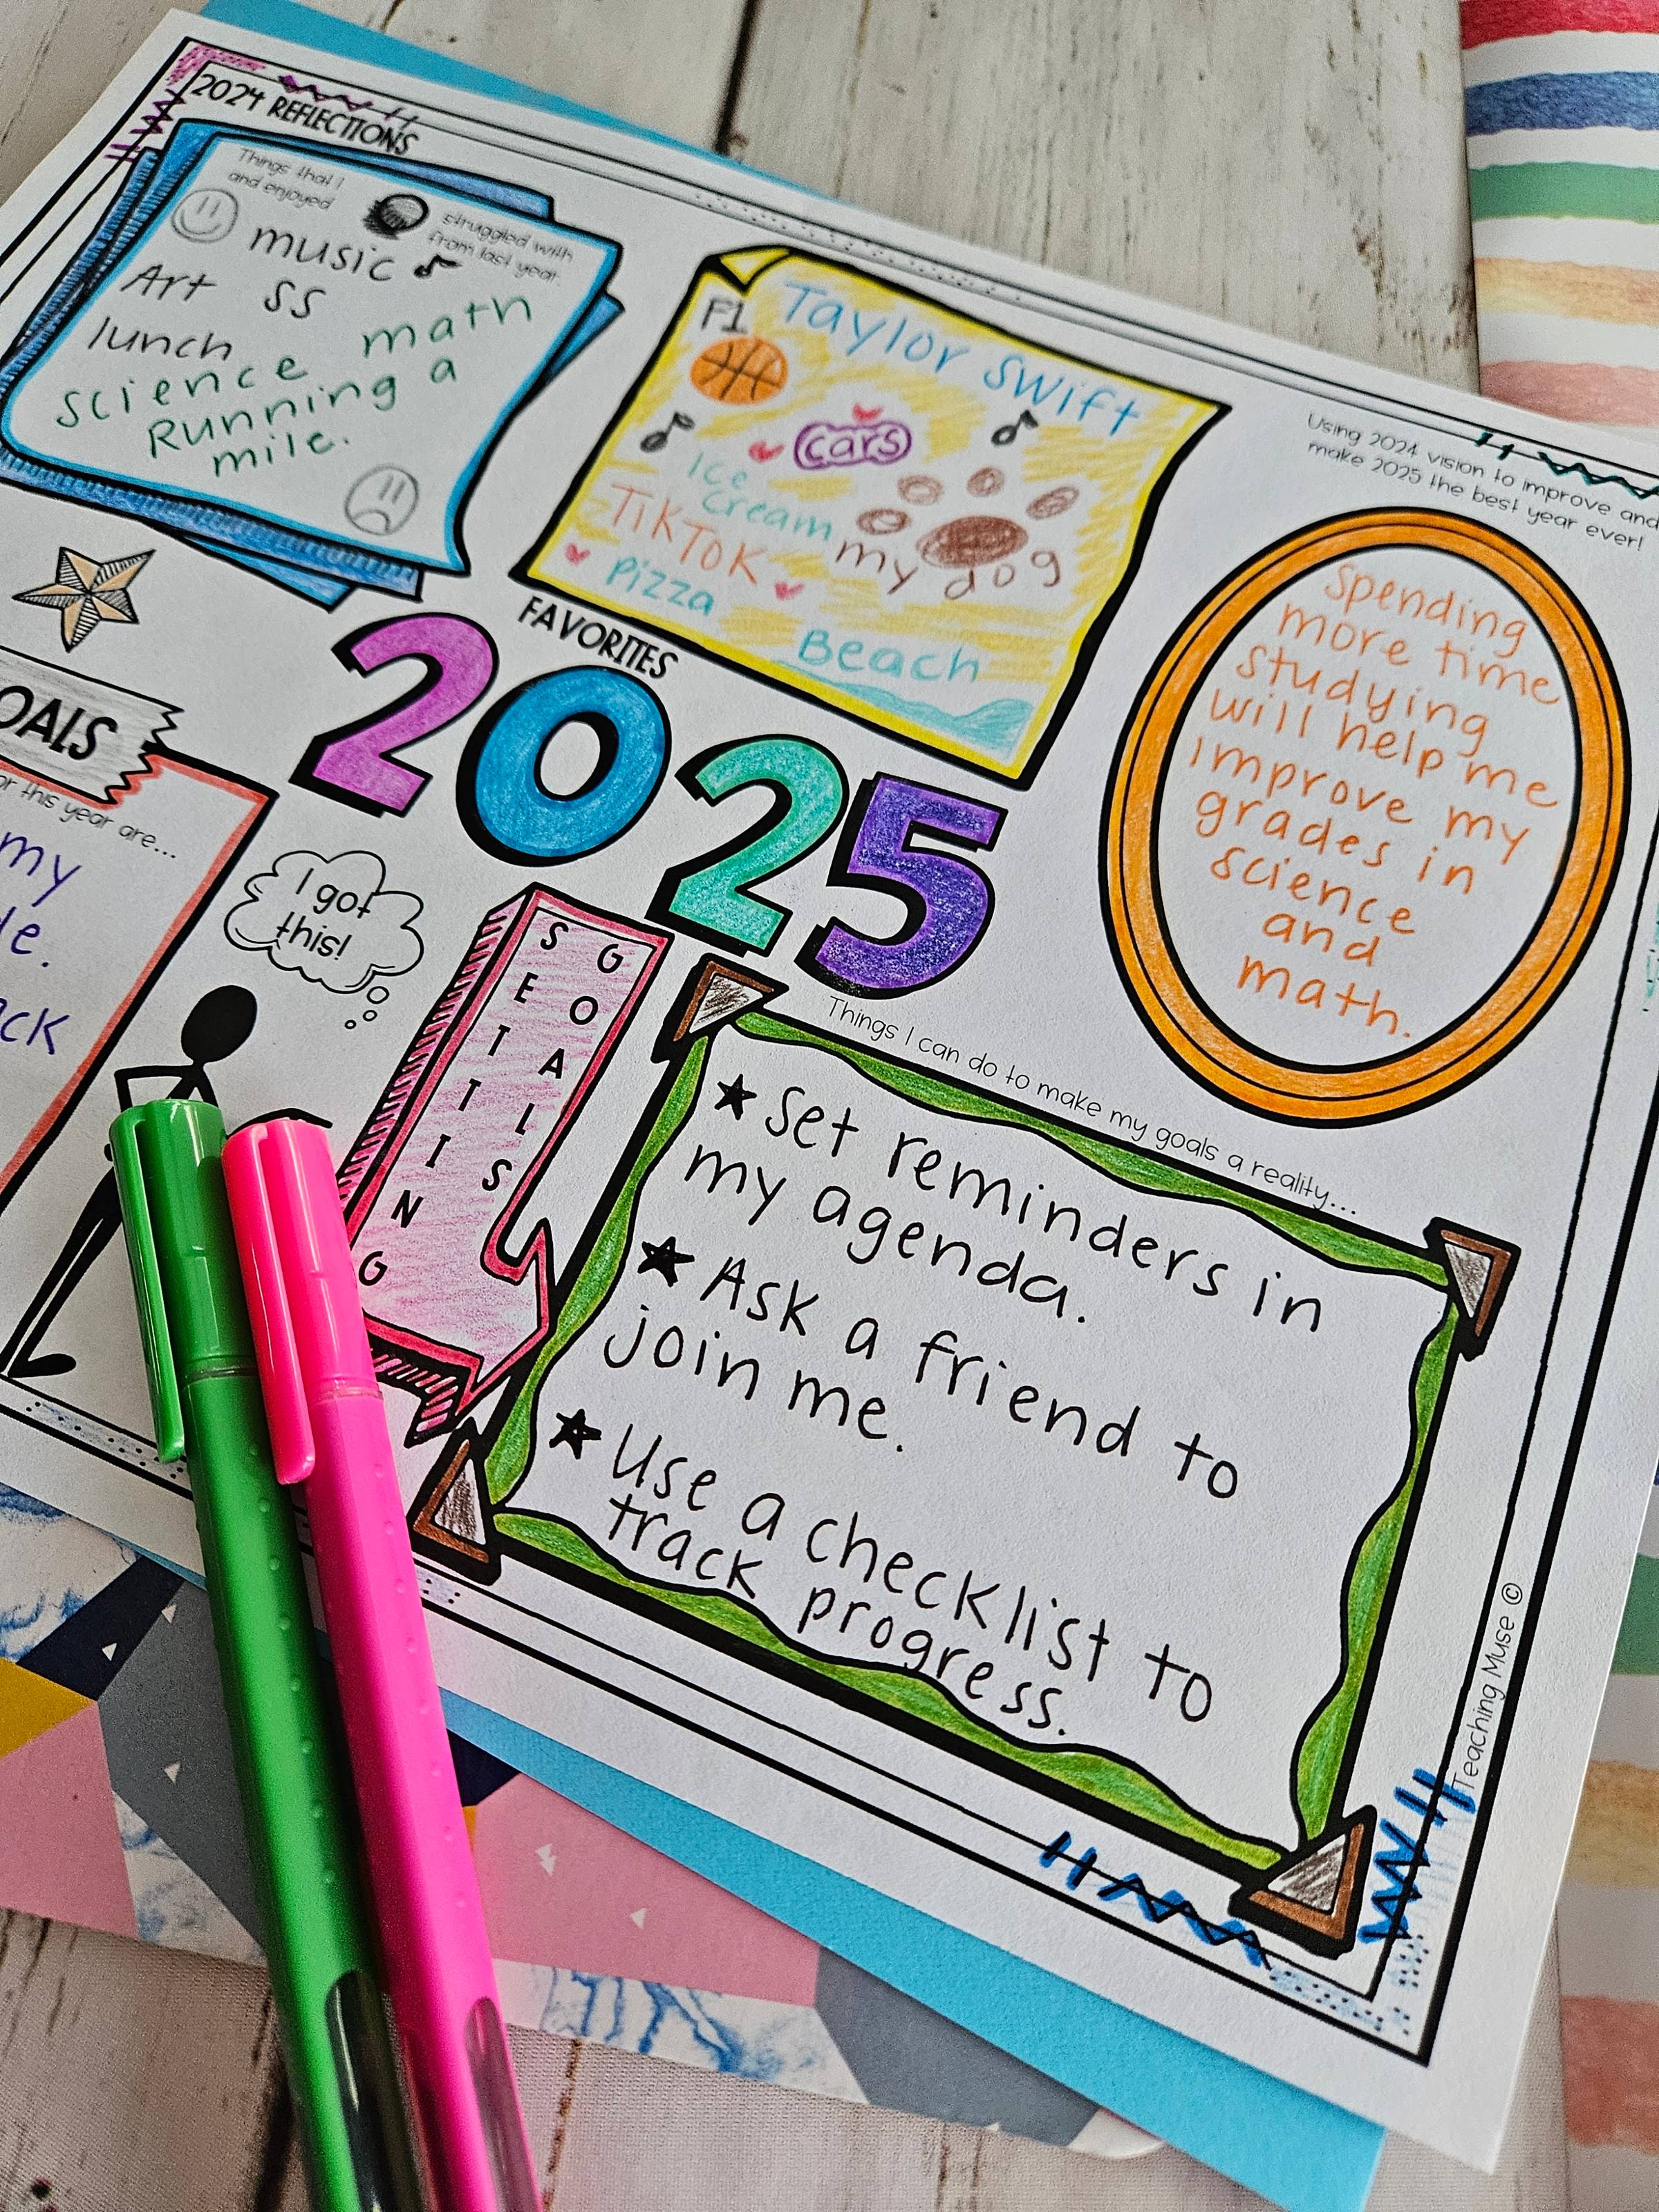 2024 REFLECTIONS
Things that I
and enjoyed
struggled with
from last year.
music
Art SS
lunch
math
science
Running a
mile.
F1 Taylor Swift
cars
Ice
cream
TikTok
my dog
Pizza
Beach
FAVORITES
Using 2024 vision to improve and
make 2025 the best year ever!
Spending
more time
studying
will help me
improve my
grades in
science
and
math.
2025
OALS
this year are...
my
ck
I got
this!
SETTING
GOALS
Things I can do to make my goals a reality...
★ Set reminders in
my agenda.
★ Ask a friend to
join me.
★ Use a checklist to
track progress.
Teaching Muse ©